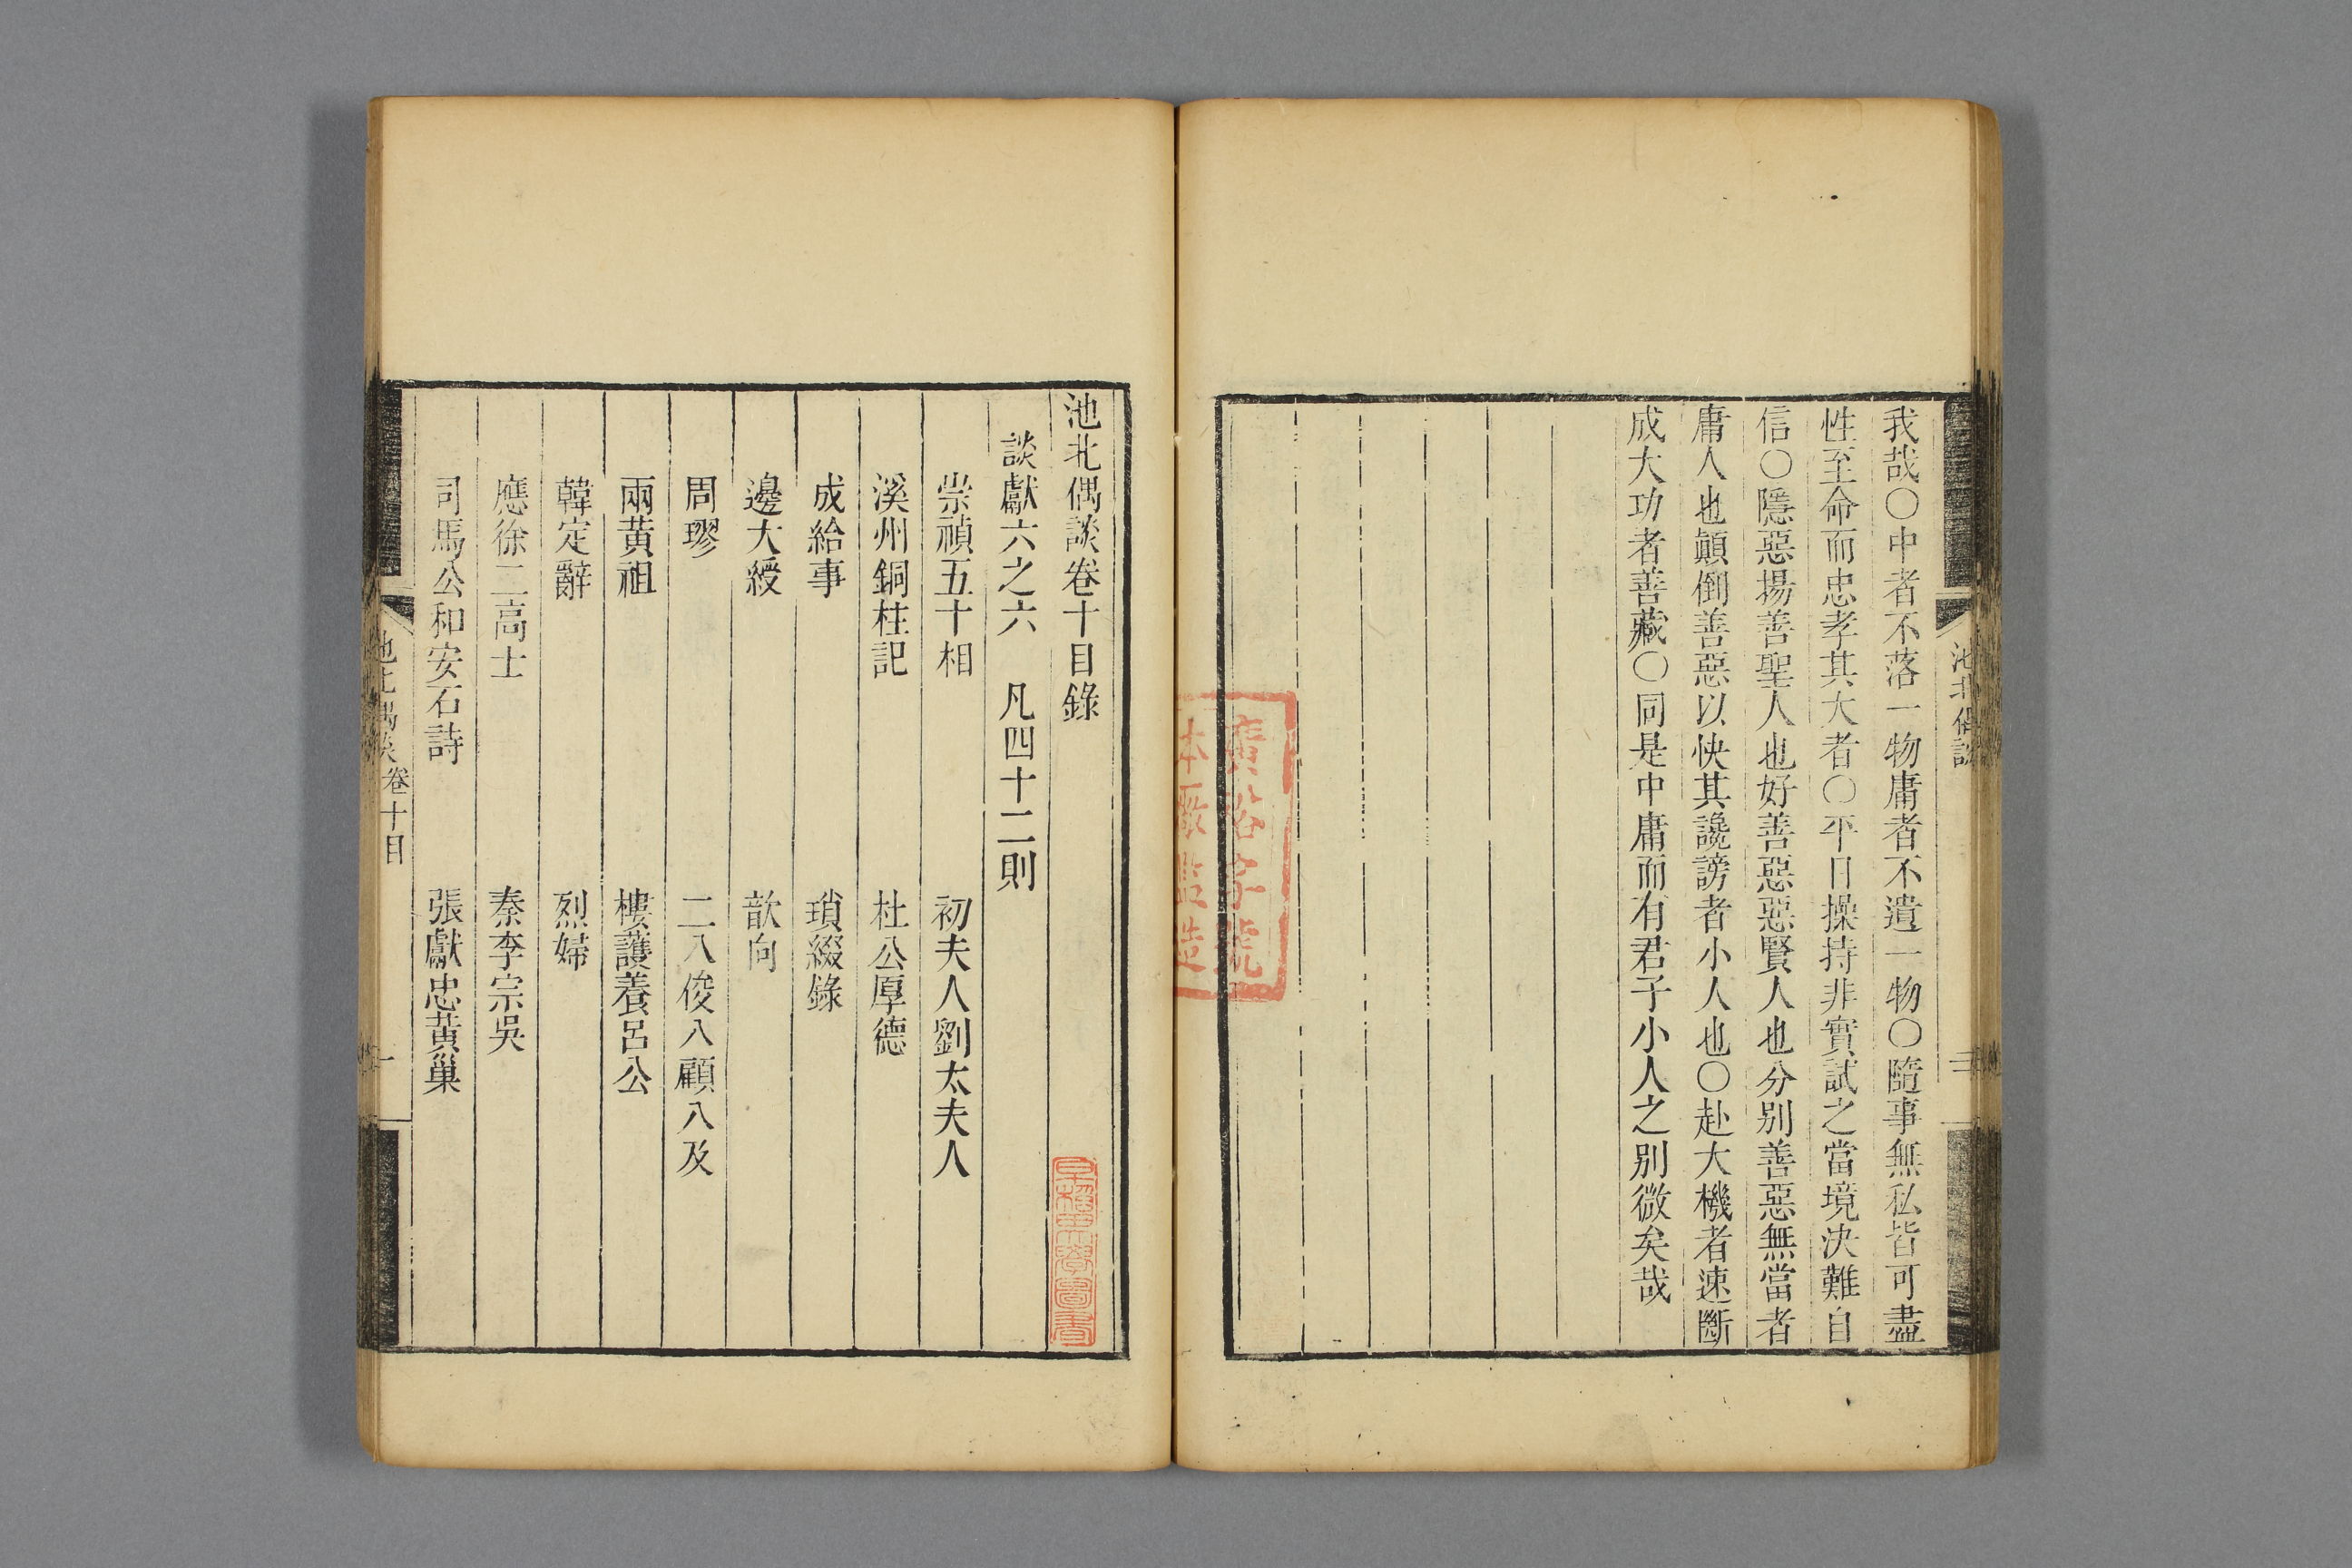 我哉○中者不落一物庸者不遺一物○隨事無私皆可盡
性至命而忠孝其大者○平日操持非實試之當境決難自
信○隱惡揚善聖人也好善惡惡賢人也分別善惡無當者
庸人也顚倒善惡以快其讒謗者小人也○赴大機者速斷
成大功者善藏○同是中庸而有君子小人之別微矣哉
池北偶談卷十目錄
談獻六之六　凡四十二則
崇禎五十相　初夫人劉太夫人
溪州銅柱記　杜公厚德
成給事　瑣綴錄
邊大綬　歆向
周璆　二八俊八顧八及
兩黃祖　樓護養呂公
韓定辭　烈婦
應徐二高士　秦李宗吳
司馬公和安石詩　張獻忠黃巢
池北偶談 卷十目 一
早稻田大學圖書